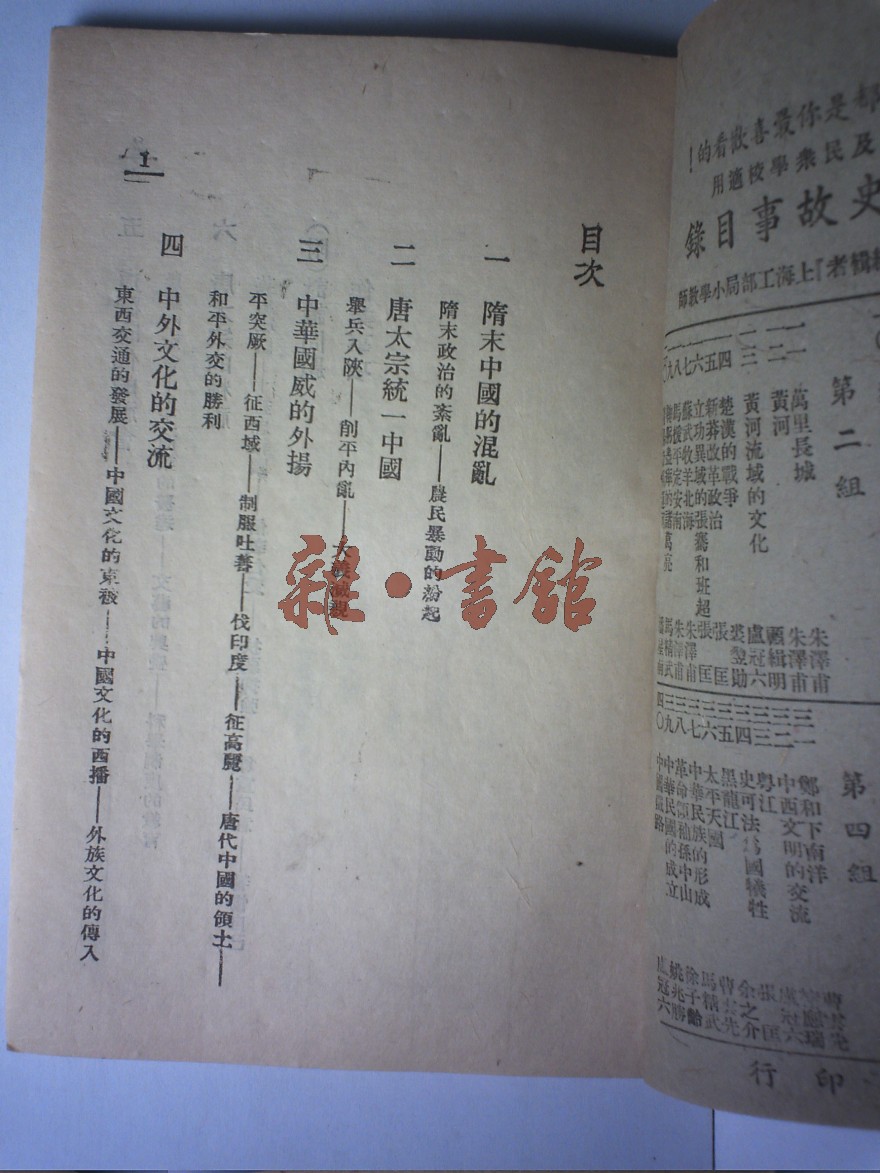 目次
一 隋末中國的混亂
隋末政治的紊亂——農民暴動的紛起
二 唐太宗統一中國
舉兵入陝——削平內亂——大義滅親
三 中華國威的外揚
平突厥——征西域——制服吐蕃——伐印度——征高麗——唐代中國的領土——
和平外交的勝利
四 中外文化的交流
東西交通的發展——中國文化的東被——中國文化的西播——外族文化的傳入
1
雜·書館
是你最喜歡看的!
及民衆學校適用
史故事目錄
編輯者『上海工部局小學教師
第二組
一一 萬里長城 朱澤甫
一二 黃河 朱澤甫
一三 黃河流域的文化 顧緝明
四 楚漢的戰爭 盧冠六
五 新莽改革政治 裘翌勛
六 立功異域的張騫和班超 張匡
七 蘇武牧羊北海 張匡
八 馬援平定安南 朱澤甫
九 朱澤甫
馬精武
第四組
三一 鄭和下南洋
三二 中西文明的交流
三三 粵江
三四 史可法爲國犧牲 盧冠六
三五 黑龍江 張匡
三六 太平天國 余之介
三七 中華民族的形成 曹雲先
三八 革命領袖孫中山 馬精武
三九 中華民國的成立 徐子餄
四〇 姚兆勝
冠六
印行